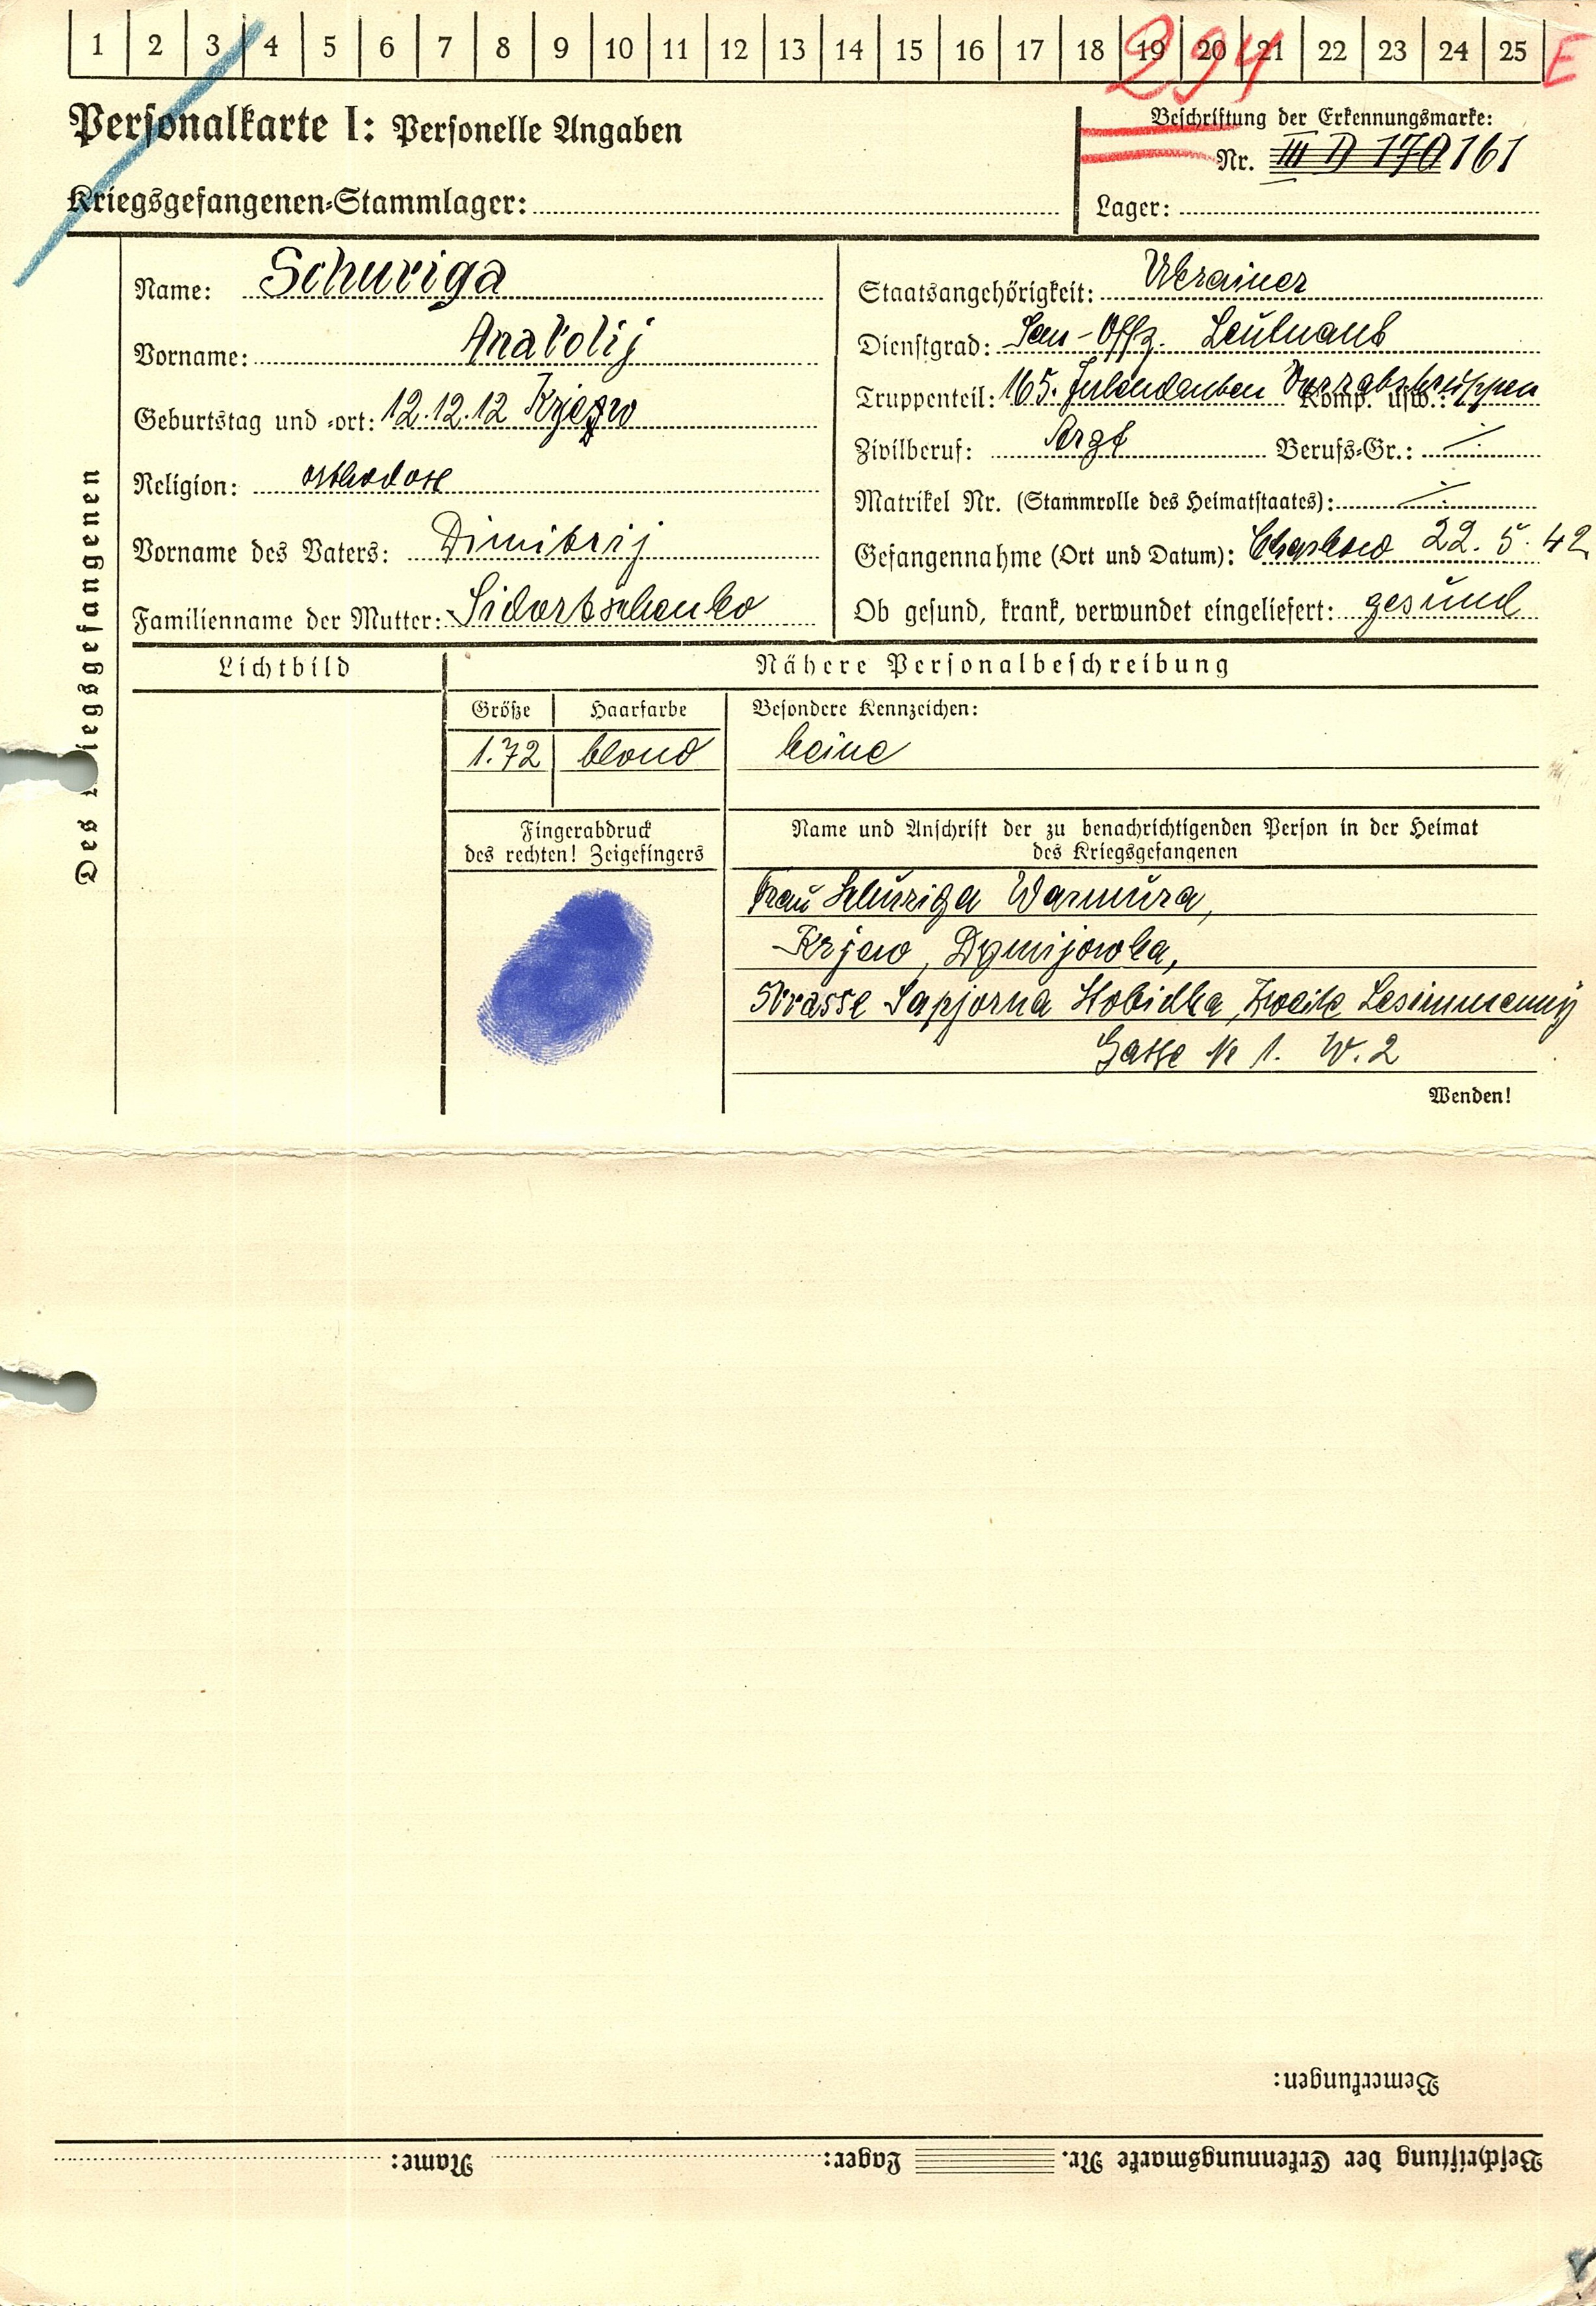 1 2 3 4 5 6 7 8 9 10 11 12 13 14 15 16 17 18 19 20 21 22 23 24 25 E
294
Personalkarte I: Personelle Angaben
Beschriftung der Erkennungsmarke:
Nr. III D 170161
Kriegsgefangenen-Stammlager:
Lager:
Des Kriegsgefangenen
Name: Schuriga
Vorname: Anatolij
Geburtstag und -ort: 12.12.12 Kijew
Religion: orthodox
Vorname des Vaters: Dimitrij
Familienname der Mutter: Sidortschenko
Staatsangehörigkeit: Ukrainer
Dienstgrad: San-Offz. Leutnant
Truppenteil: 165. Komp. usw.:
Zivilberuf: Arzt Berufs-Gr.: ./.
Matrikel Nr. (Stammrolle des Heimatstaates): ./.
Gefangennahme (Ort und Datum): Charkow 22.5.42
Ob gesund, krank, verwundet eingeliefert: gesund
Lichtbild
Nähere Personalbeschreibung
Größe Haarfarbe Besondere Kennzeichen:
1.72 blond keine
Fingerabdruck
des rechten! Zeigefingers
Name und Anschrift der zu benachrichtigenden Person in der Heimat
des Kriegsgefangenen
Frau Schuriga Warwura,
Kijew, Dymijowka,
Strasse Sapjorna Slobidka, Zweite
Gasse № 1. W. 2
Wenden!
Bemerkungen:
Beschriftung der Erkennungsmarke Nr. Lager: Name: